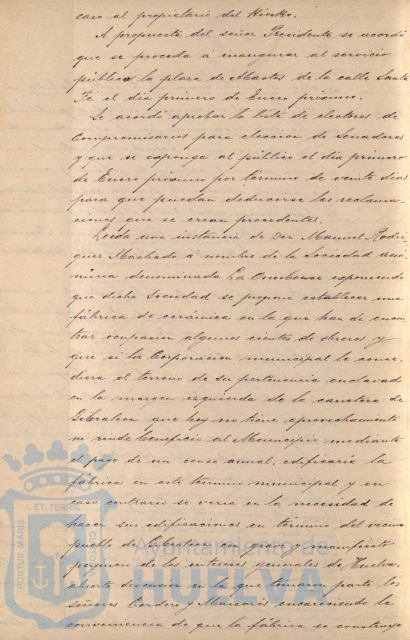 caso al propietario del Kiosko.
A propuesta del señor Presidente se acordó
que se proceda á inaugurar al servicio
público la plaza de Abastos de la calle Santa
Fé el dia primero de Enero próximo.
Se acordó aprobar la lista de electores de
Compromisarios para eleccion de Senadores
y que se exponga al público el dia primero
de Enero próximo por término de veinte dias
para que puedan deducirse las reclama-
ciones que se crean procedentes.
Leida una instancia de Don Manuel Rodri-
guez Machado á nombre de la Sociedad anó-
nima denominada La Onubense exponiendo
que dicha Sociedad se propone establecer una
fábrica de cerámica en la que han de encon-
trar ocupacion algunos cientos de obreros y
que si la Corporacion municipal le conce-
diera el terreno de su pertenencia enclavado
en la margen izquierda de la carretera de
Gibraleon que hoy no tiene aprovechamiento
ni rinde beneficio al Municipio mediante
el pago de un censo anual, edificaria la
fábrica en este término municipal y en
caso contrario se veria en la necesidad de
hacer sus edificaciones en término del vecino
pueblo de Gibraleon con grave y manifiesto
perjuicio de los intereses generales de Huelva.
Abierta discusion en la que tomaron parte los
señores Cordero y encareciendo la
conveniencia de que la fábrica se construya
PORTUS MARIS ET TERRAE CUSTODIA
Ayuntamiento de
HUELVA